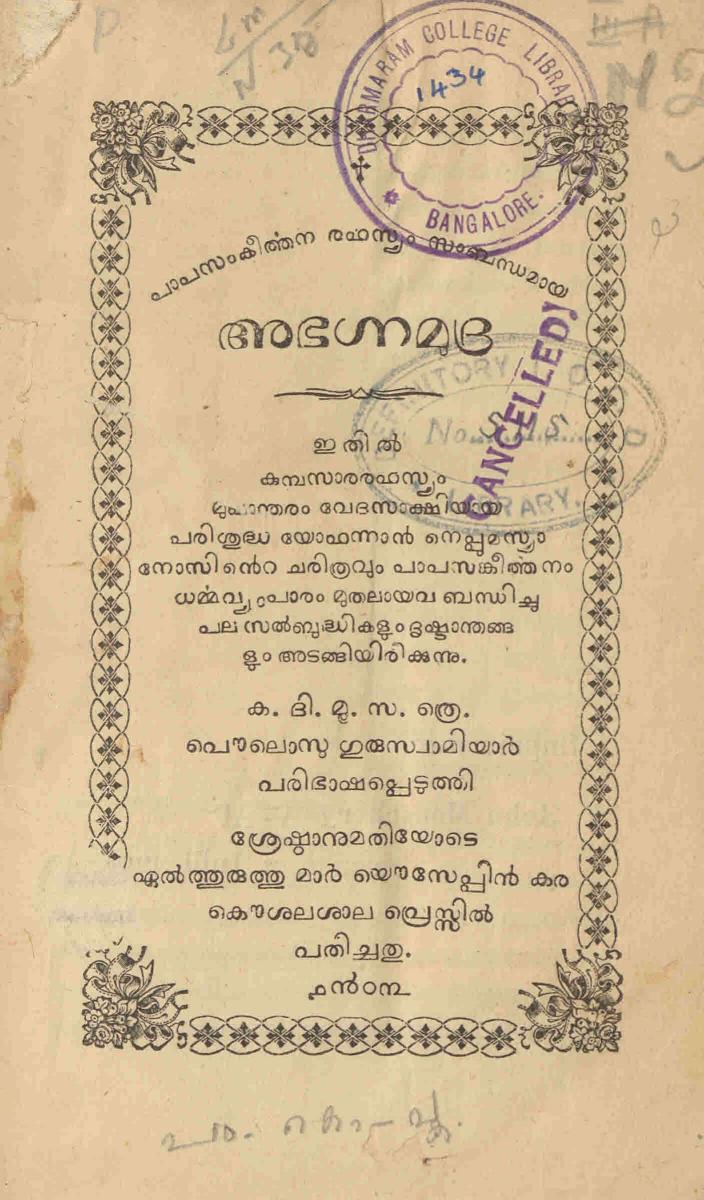 DHARMARAM COLLEGE LIBRARY
1434
BANGALORE.
പാപസംകീൎത്തന രഹസ്യം സംബന്ധമായ
അഭഗ്നമുദ്ര
CANCELLED
No.
LIBRARY.
ഇതിൽ
കുമ്പസാരരഹസ്യം
മുഹാന്തരം വേദസാക്ഷിയായ
പരിശുദ്ധ യോഹന്നാൻ നെപ്പുമസ്യാ
നോസിൻെറ ചരിത്രവും പാപസങ്കീൎത്തനം
ധൎമ്മവ്യാപാരം മുതലായവ ബന്ധിച്ച
പല സൽബുദ്ധികളും ദൃഷ്ടാന്തങ്ങ
ളും അടങ്ങിയിരിക്കുന്നു.
ക. ദി. മൂ. സ. ത്രെ.
പൌലൊസു ഗുരുസ്വാമിയാർ
പരിഭാഷപ്പെടുത്തി
ശ്രേഷ്ഠാനുമതിയോടെ
ഏൽത്തുരുത്തു മാർ യൌസേപ്പിൻ കര
കൌശലശാല പ്രെസ്സിൽ
പതിച്ചതു.
൧൯൦൩